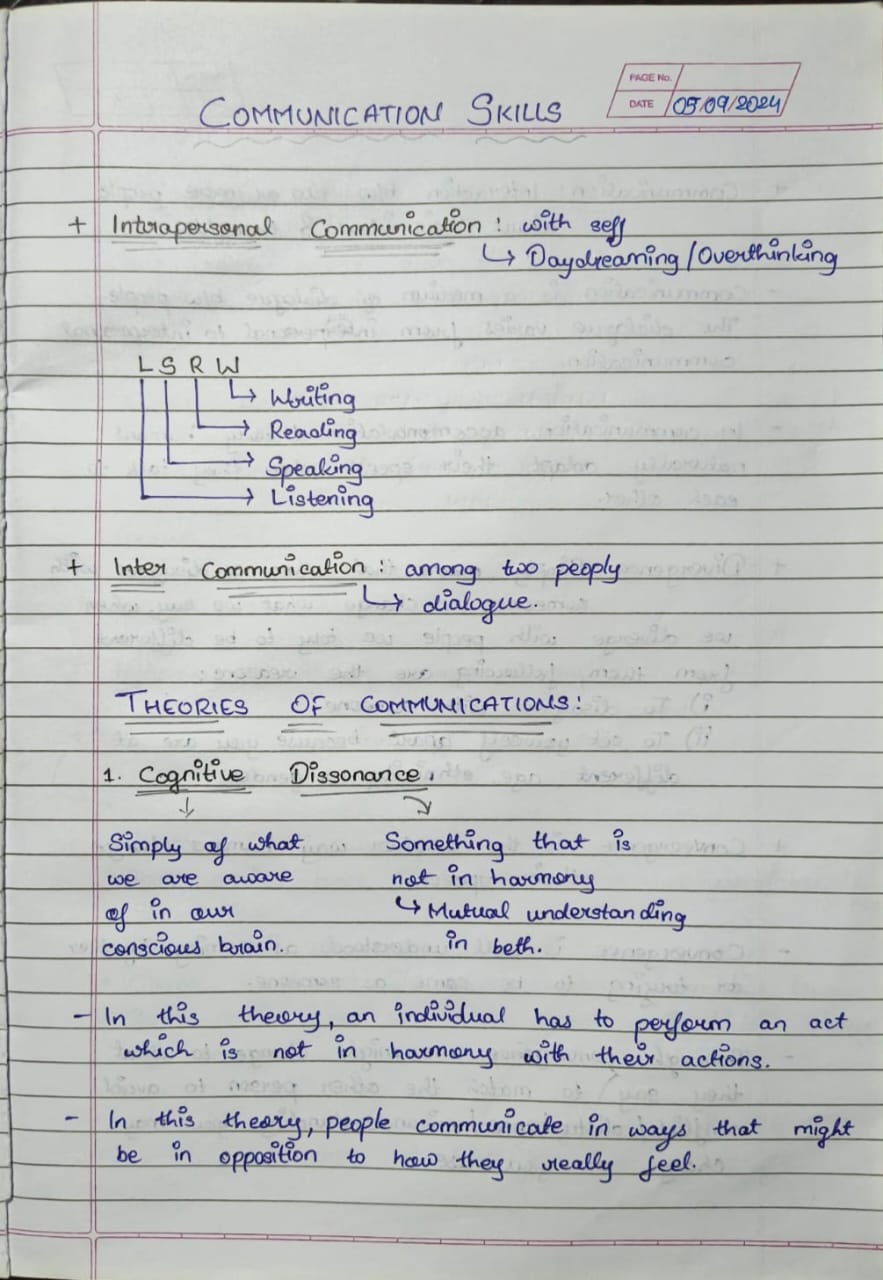 PAGE No.
DATE 05/09/2024
COMMUNICATION SKILLS
+ Intrapersonal Communication : with self
↳ Daydreaming/Overthinking
L S R W
→ Writing
→ Reading
→ Speaking
→ Listening
+ Inter Communication : among two peoply
↳ dialogue.
THEORIES OF COMMUNICATIONS:
1. Cognitive Dissonance.
Simply of what
we are aware
of in our
conscious brain.
Something that is
not in harmony
↳ Mutual understanding
in beth.
- In this theory, an individual has to perform an act
which is not in harmony with their actions.
- In this theory, people communicate in ways that might
be in opposition to how they really feel.